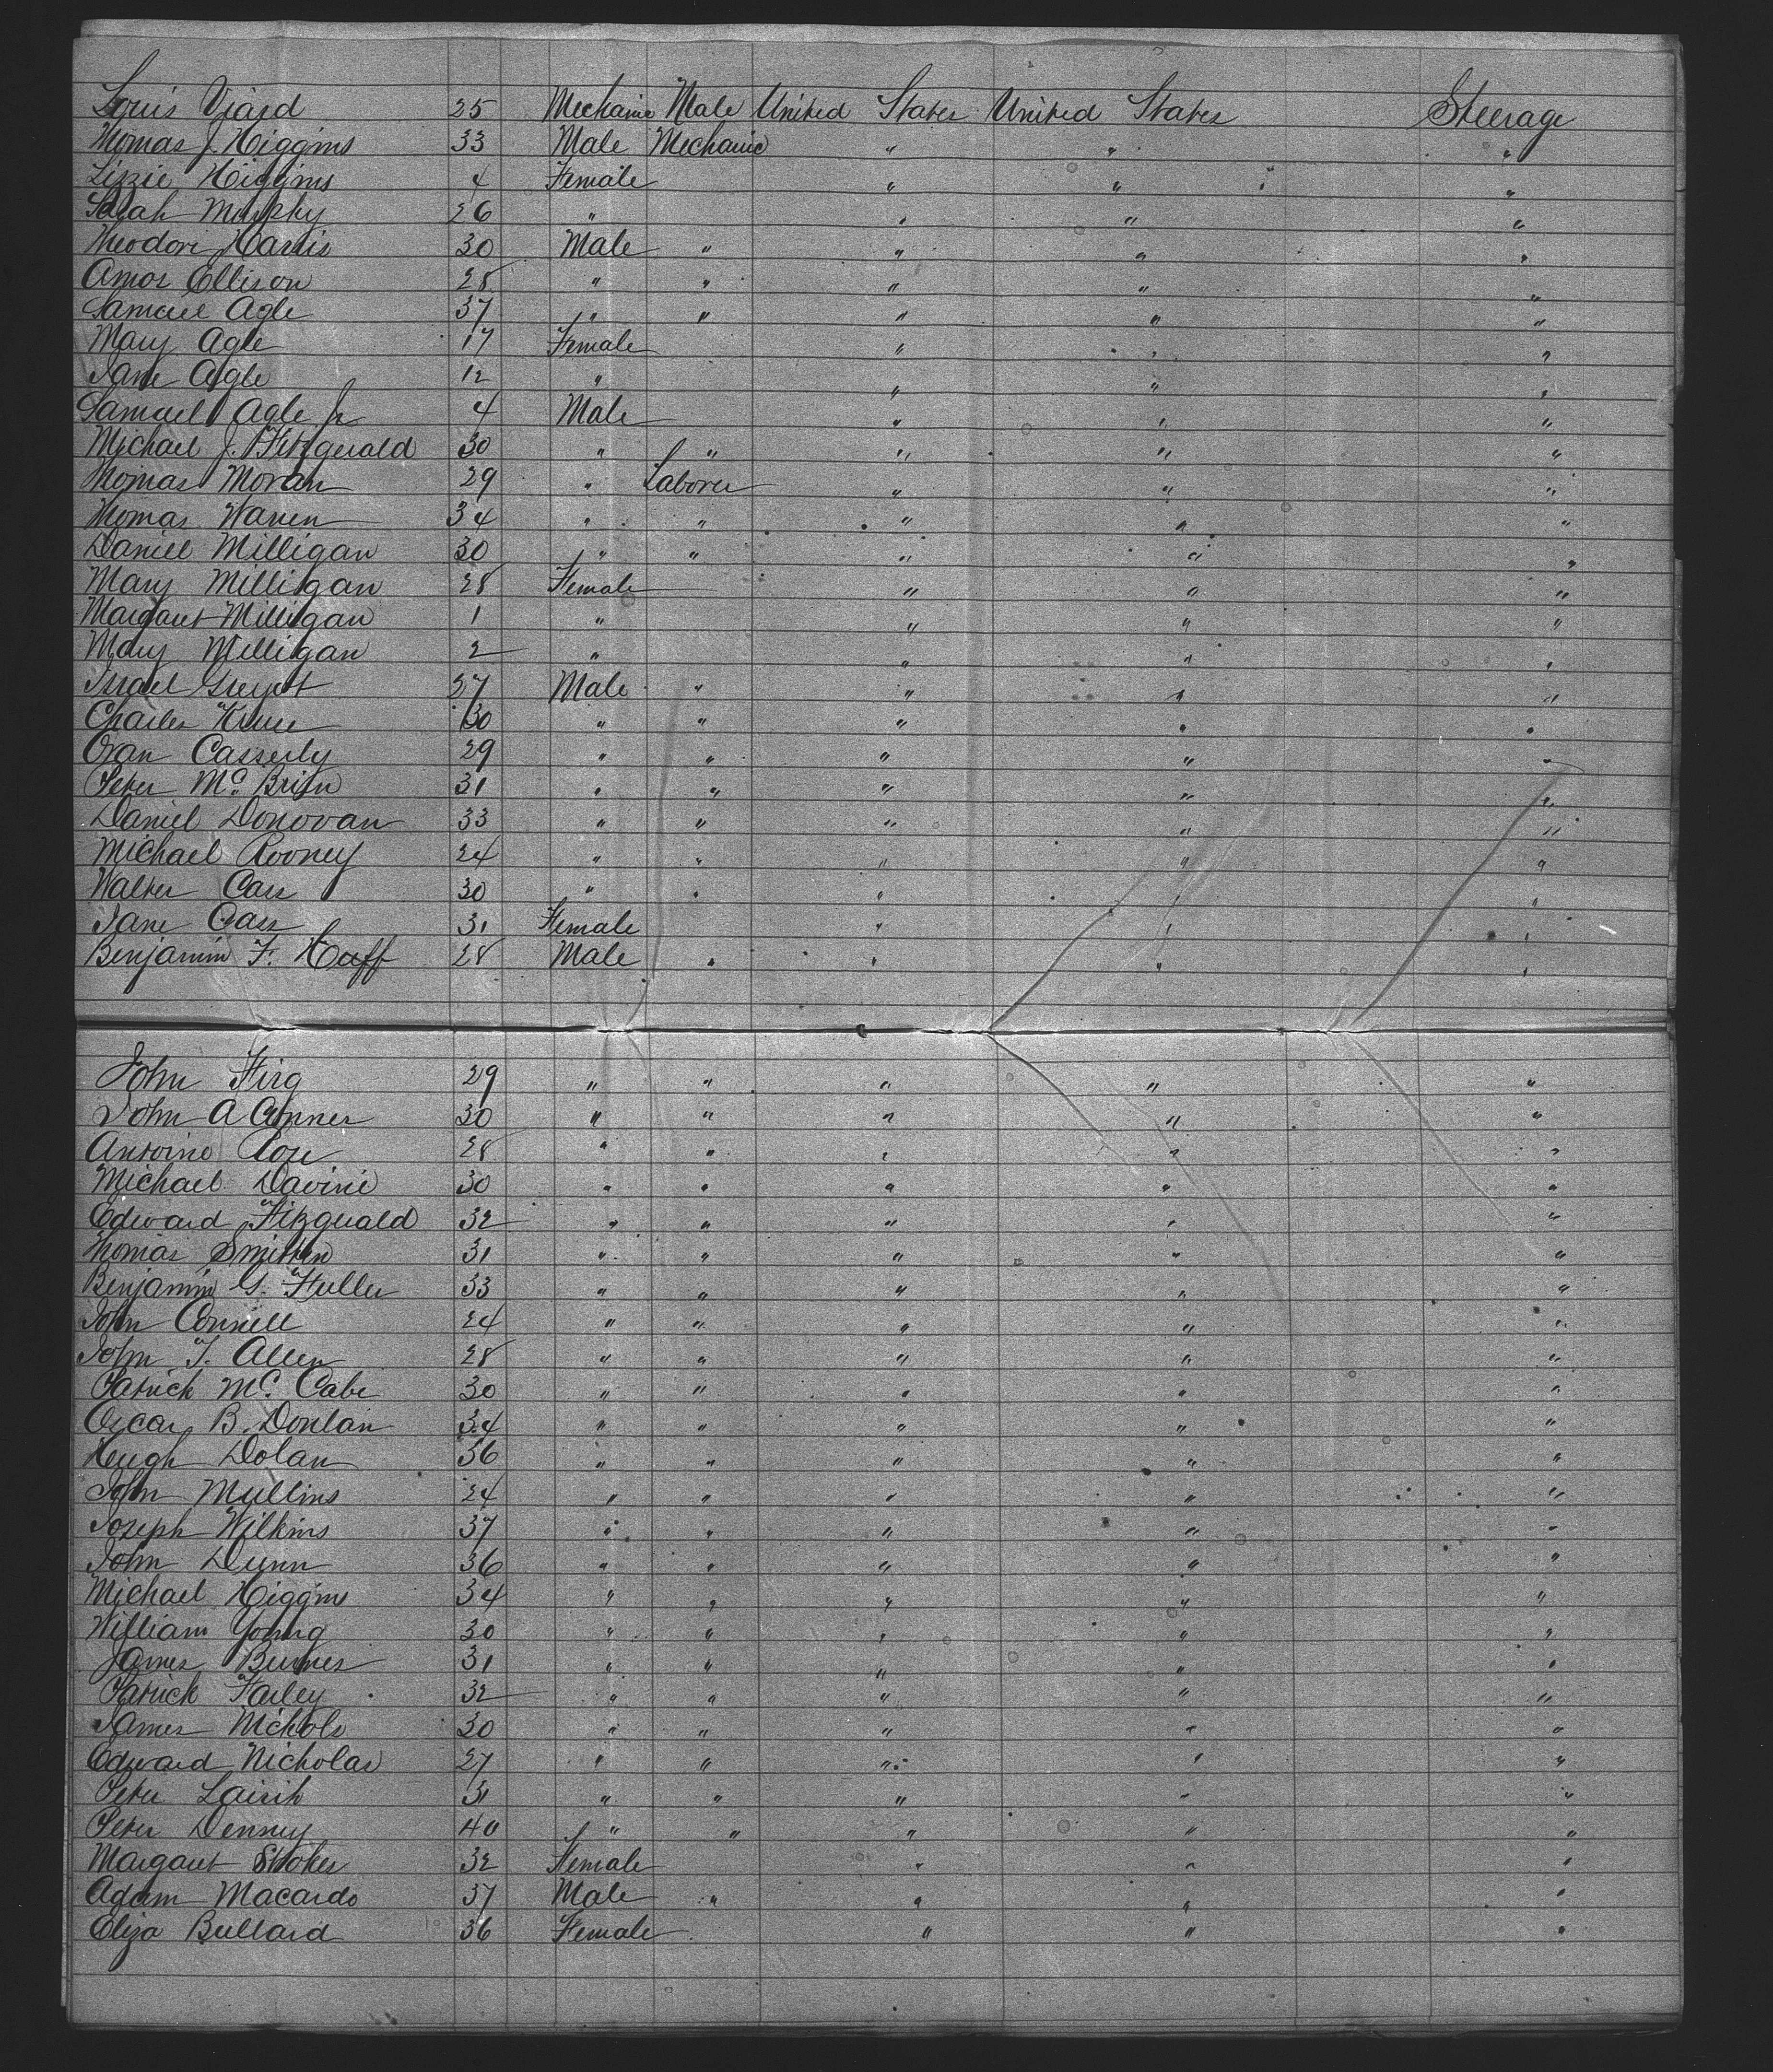 Louis Viard 25 Mechanic Male United States United States Steerage
Thomas J. Higgins 33 Male Mechanic " " "
Lizzie Higgins 4 Female " " "
Sarah Murphy 26 " " " "
Theodore Harris 30 Male " " " "
Amos Ellison 28 " " " " "
Samuel Agle 37 " " " " "
Mary Agle 17 Female " " "
Jane Agle 12 " " " "
Samuel Agle Jr 4 Male " " "
Michael J. Fitzgerald 30 " " " " "
Thomas Moran 29 " Laborer " " "
Thomas Warren 34 " " " " "
Daniel Milligan 30 " " " " "
Mary Milligan 28 Female " " "
Margaret Milligan 1 " " " "
Mary Milligan 2 " " " "
Israel 27 Male " " " "
Charles Kruse 30 " " " " "
Oran Casserly 29 " " " " "
Peter Mc Brien 31 " " " " "
Daniel Donovan 33 " " " " "
Michael Rooney 24 " " " " "
Walter Cass 30 " " " " "
Jane Cass 31 Female " " "
Benjamin F. Huff 28 Male " " " "
John 29 " " " " "
John A Conner 30 " " " " "
Antoine 28 " " " " "
Michael Davine 30 " " " " "
Edward Fitzgerald 32 " " " " "
Thomas 31 " " " " "
Benjamin G. Fuller 33 " " " " "
John Connell 24 " " " " "
John T. Allen 28 " " " " "
Patrick Mc. Cabe 30 " " " " "
Oscar B. Donlan 34 " " " " "
Hugh Dolan 36 " " " " "
John Mullins 24 " " " " "
Joseph Wilkins 37 " " " " "
John Dunn 36 " " " " "
Michael Higgins 34 " " " " "
William Young 30 " " " " "
James Burnes 31 " " " " "
Patrick Farley 32 " " " " "
James Nichols 30 " " " " "
Edward Nicholas 27 " " " " "
Peter 31 " " " " "
Peter Denney 40 " " " " "
Margaret Stokes 32 Female " " "
Adam Macardo 37 Male " " " "
Eliza Bullard 36 Female " " "